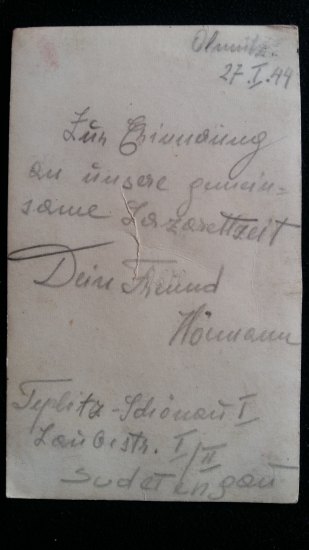 Olmütz.
27.I.44
Zur Erinnerung
an unsere gemein=
same Lazarettzeit
Dein Freund
Hörmann
Teplitz-Schönau I
Laubestr. I/II
Sudetengau